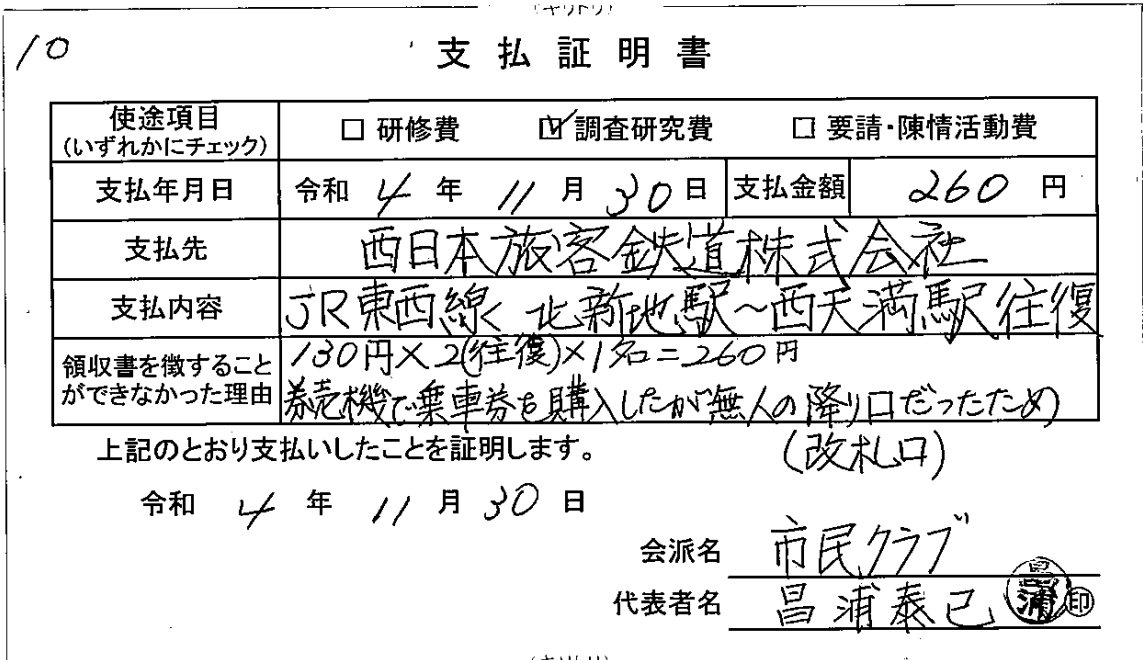 (キリトリ)
10
支払証明書
使途項目
(いずれかにチェック)
□ 研修費 ☑ 調査研究費 □ 要請・陳情活動費
支払年月日 令和 4 年 11 月 30 日 支払金額 260 円
支払先 西日本旅客鉄道株式会社
支払内容 JR東西線く 北新地駅~西天満駅 往復
領収書を徴すること
ができなかった理由
130円×2(往復)×1名=260円
券売機で乗車券を購入したが無人の降り口だったため
(改札口)
上記のとおり支払いしたことを証明します。
令和 4 年 11 月 30 日
会派名 市民クラブ
代表者名 昌浦泰已 昌浦 印
(キリトリ)